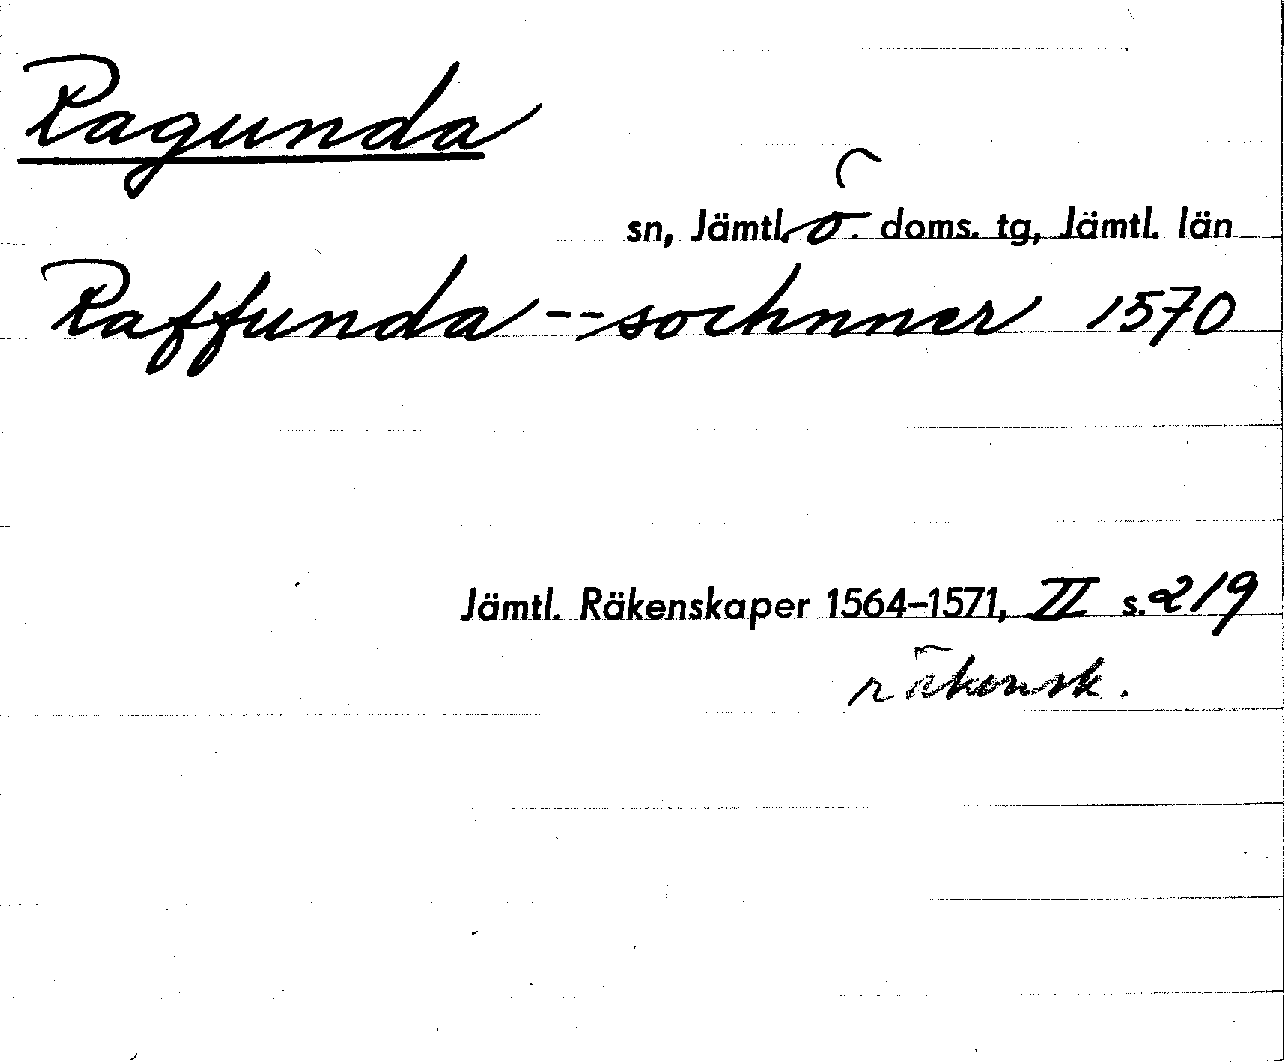 Ragunda
sn, Jämtl. ö. doms. tg, Jämtl. län
Raffunda -- sochnner 1570
Jämtl. Räkenskaper 1564–1571, II s. 219
räkensk.